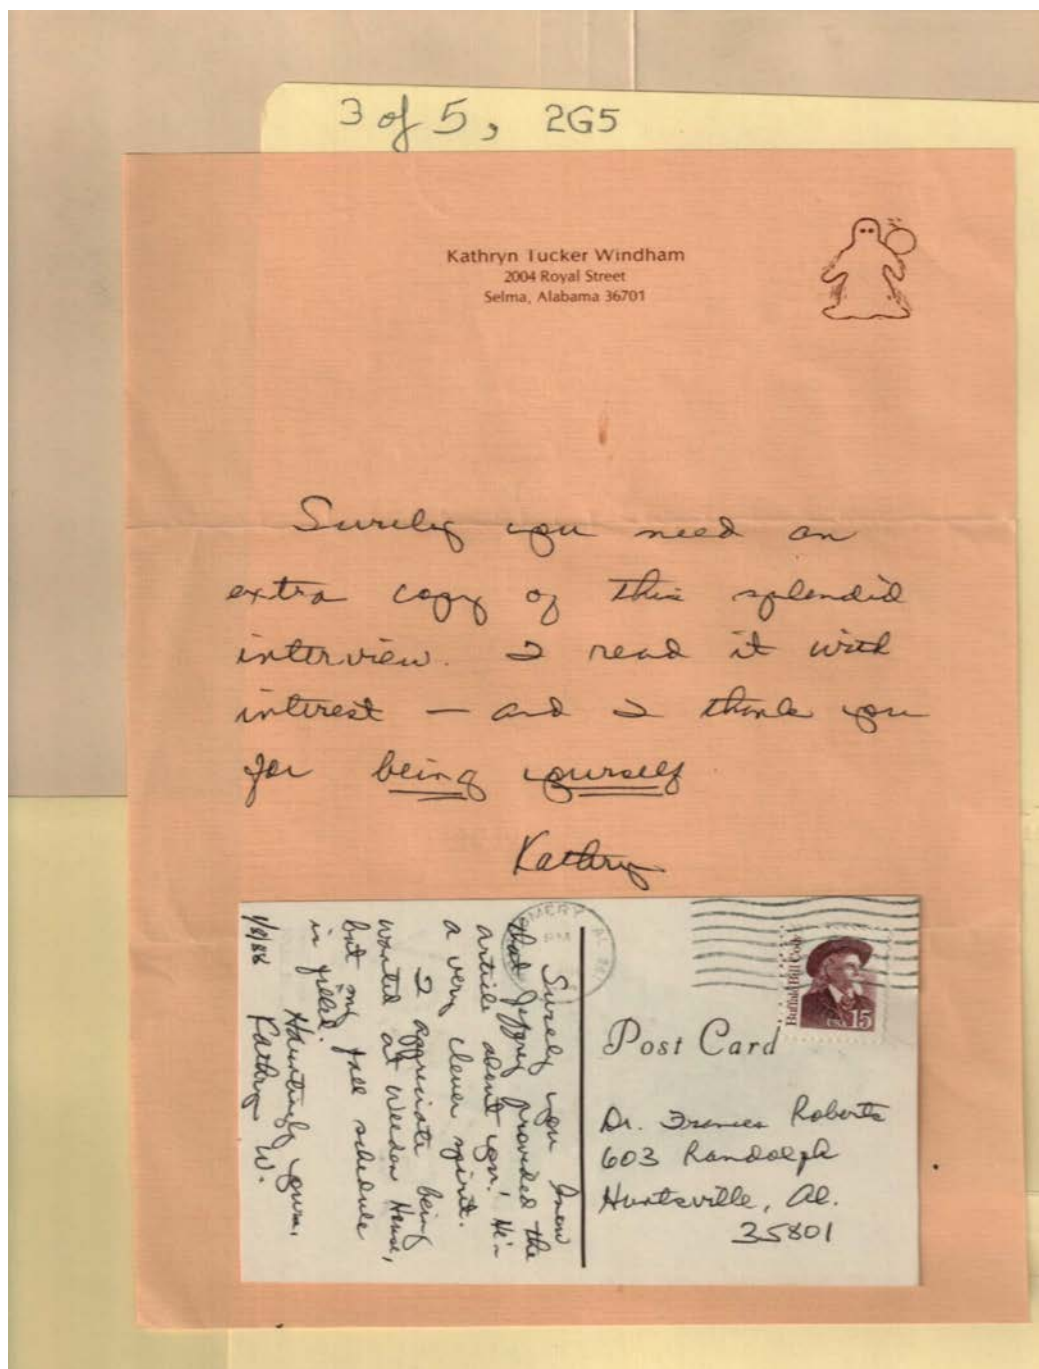 3 of 5, 2G5
Kathryn Tucker Windham
2004 Royal Street
Selma, Alabama 36701
Surely you need an
extra copy of this splendid
interview. I read it with
interest — and I thank you
for being yourself
Kathryn
Surely you knew
that Jeffrey provided the
article about you! He's
a very clever spirit.
I appreciate being
wanted at Weeden House,
but my fall schedule
is filled.
Hauntingly yours,
Kathryn W.
MERY AL
Buffalo Bill Cody
USA 15
Post Card
Dr. Frances Roberts
603 Randolph
Huntsville, Al.
35801